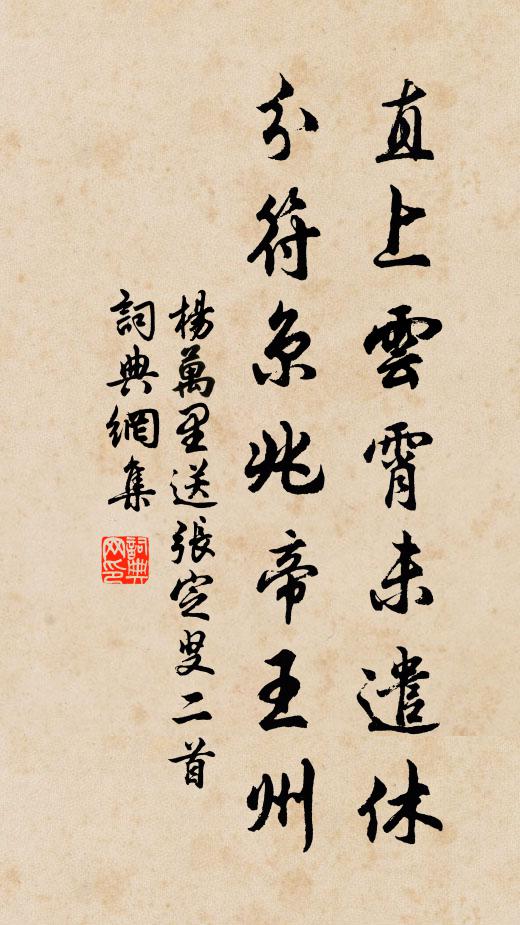 直上雲霄未遣休
分符京兆帝王州
楊萬里送張定叟二首
詞典網集
詞典網印